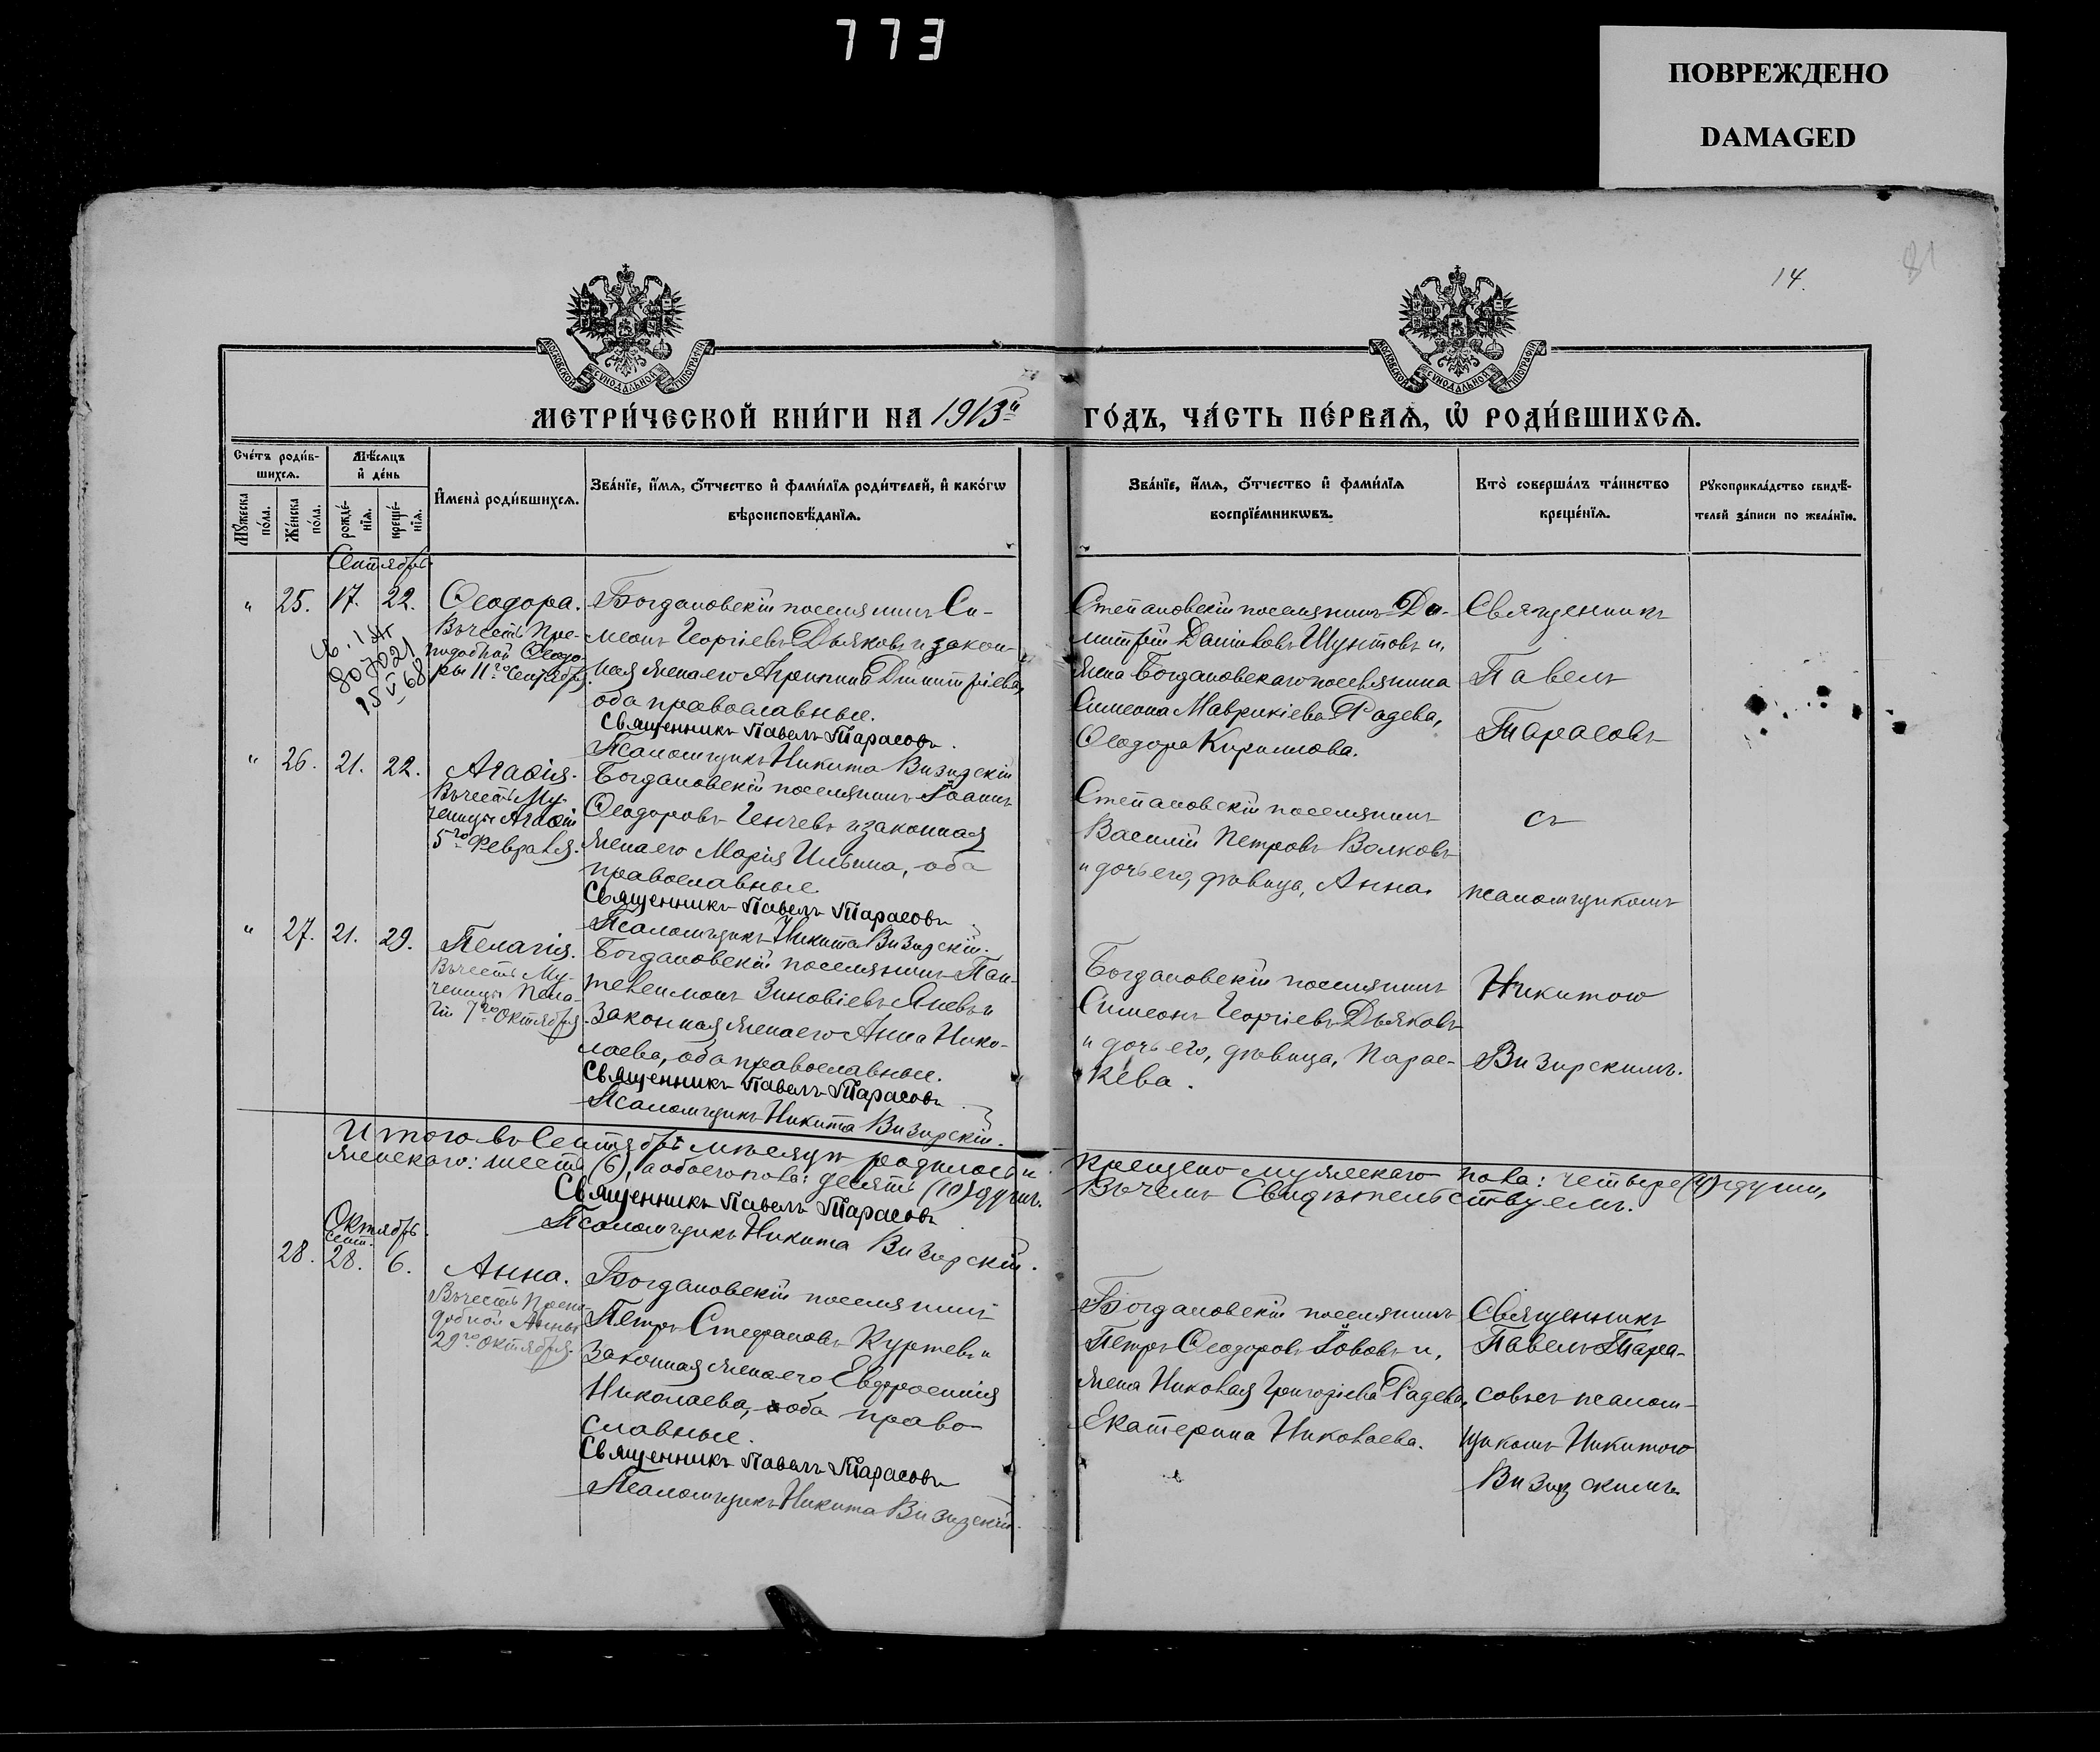 773
ПОВРЕЖДЕНО
DAMAGED
14.
81
МОСКОВСКОЙ СѴНОДАЛЬНОЙ ТИПОГРАФІИ
МОСКОВСКОЙ СѴНОДАЛЬНОЙ ТИПОГРАФІИ
МЕТРИ́ЧЕСКОЙ КНИ́ГИ НА 1913й ГО́ДЪ, ЧА́СТЬ ПЕ́РВАѦ, Ѡ҆ РОДИ́ВШИХСѦ.
Сче́тъ роди́в-
шихсѧ.
Мѣ́сѧцъ
и҆ де́нь
Мꙋ́жеска
по́ла.
Же́нска
по́ла.
рожде́-
нїѧ.
креще́-
нїѧ.
И҆мена̀ роди́вшихсѧ.
Зва́нїе, и҆́мѧ, ѻ҆́тчество и҆ фами́лїѧ роди́телей, и҆ како́гѡ
вѣроисповѣ́данїѧ.
Зва́нїе, и҆́мѧ, ѻ҆́тчество и҆ фами́лїѧ
воспрїе́мникѡвъ.
Кто̀ соверша́лъ та́инство
креще́нїѧ.
Рꙋкоприкла́дство свидѣ́-
телей за́писи по жела́нїю.
Сентябрь
" 25. 17. 22. Ѳеодора.
Въ честь Пре-
подобной Ѳеодо-
ры 11го Сентября.
15 V 68
Богдановскій поселянинъ Си-
меонъ Георгіевъ Дьяковъ и закон-
ная жена его Агрипина Димитріева,
оба православные.
Священникъ Павелъ Тарасовъ.
Псаломщикъ Никита Визирскій
Степановскій поселянинъ Ди-
митрій Даниловъ Шунтовъ и,
жена Богдановскаго поселянина
Симеона Маврикіева Радева,
Ѳеодора Кирилова.
Священникъ
Павелъ
Тарасовъ
" 26. 21. 22. Агаѳія.
Въ честь Му-
ченицы Агаѳіи
5го Февраля.
Богдановскій поселянинъ Іоаннъ
Ѳеодоровъ Генчевъ и законная
жена его Марія Ильина, оба
православные.
Священникъ Павелъ Тарасовъ
Псаломщикъ Никита Визирскій.
Степановскій поселянинъ
Василій Петровъ Волковъ
и дочь его, дѣвица, Анна.
съ
псаломщикомъ
" 27. 21. 29. Пелагія.
Въ честь Му-
ченицы Пела-
гіи 7го Октября.
Богдановскій поселянинъ Пан-
телеимонъ Зиновіевъ Яневъ и
законная жена его Анна Нико-
лаева, оба православные.
Священникъ Павелъ Тарасовъ
Псаломщикъ Никита Визирскій.
Богдановскій поселянинъ
Симеонъ Георгіевъ Дьяковъ
и дочь его, дѣвица, Парас-
кева.
Никитою
Визирскимъ.
Итого въ Сентябрѣ мѣсяцѣ родилось и крещено мужескаго пола: четыре (4) души,
женскаго: шесть (6), а обоего пола: десять (10) душъ. Въ чемъ Свидѣтельствуемъ.
Священникъ Павелъ Тарасовъ
Псаломщикъ Никита Визирскій.
Октябрь.
Сент.
28. 28. 6. Анна.
Въ честь Препо-
добной Анны
29го Октября.
Богдановскій поселянинъ
Петръ Стефановъ Куртевъ и
законная жена его Евфросинія
Николаева, оба право-
славные.
Священникъ Павелъ Тарасовъ
Псаломщикъ Никита Визирскій.
Богдановскій поселянинъ
Петръ Ѳеодоровъ Іововъ и,
жена Николая Григоріева Радева,
Екатерина Николаева.
Священникъ
Павелъ Тара-
совъ съ псалом-
щикомъ Никитою
Визирскимъ